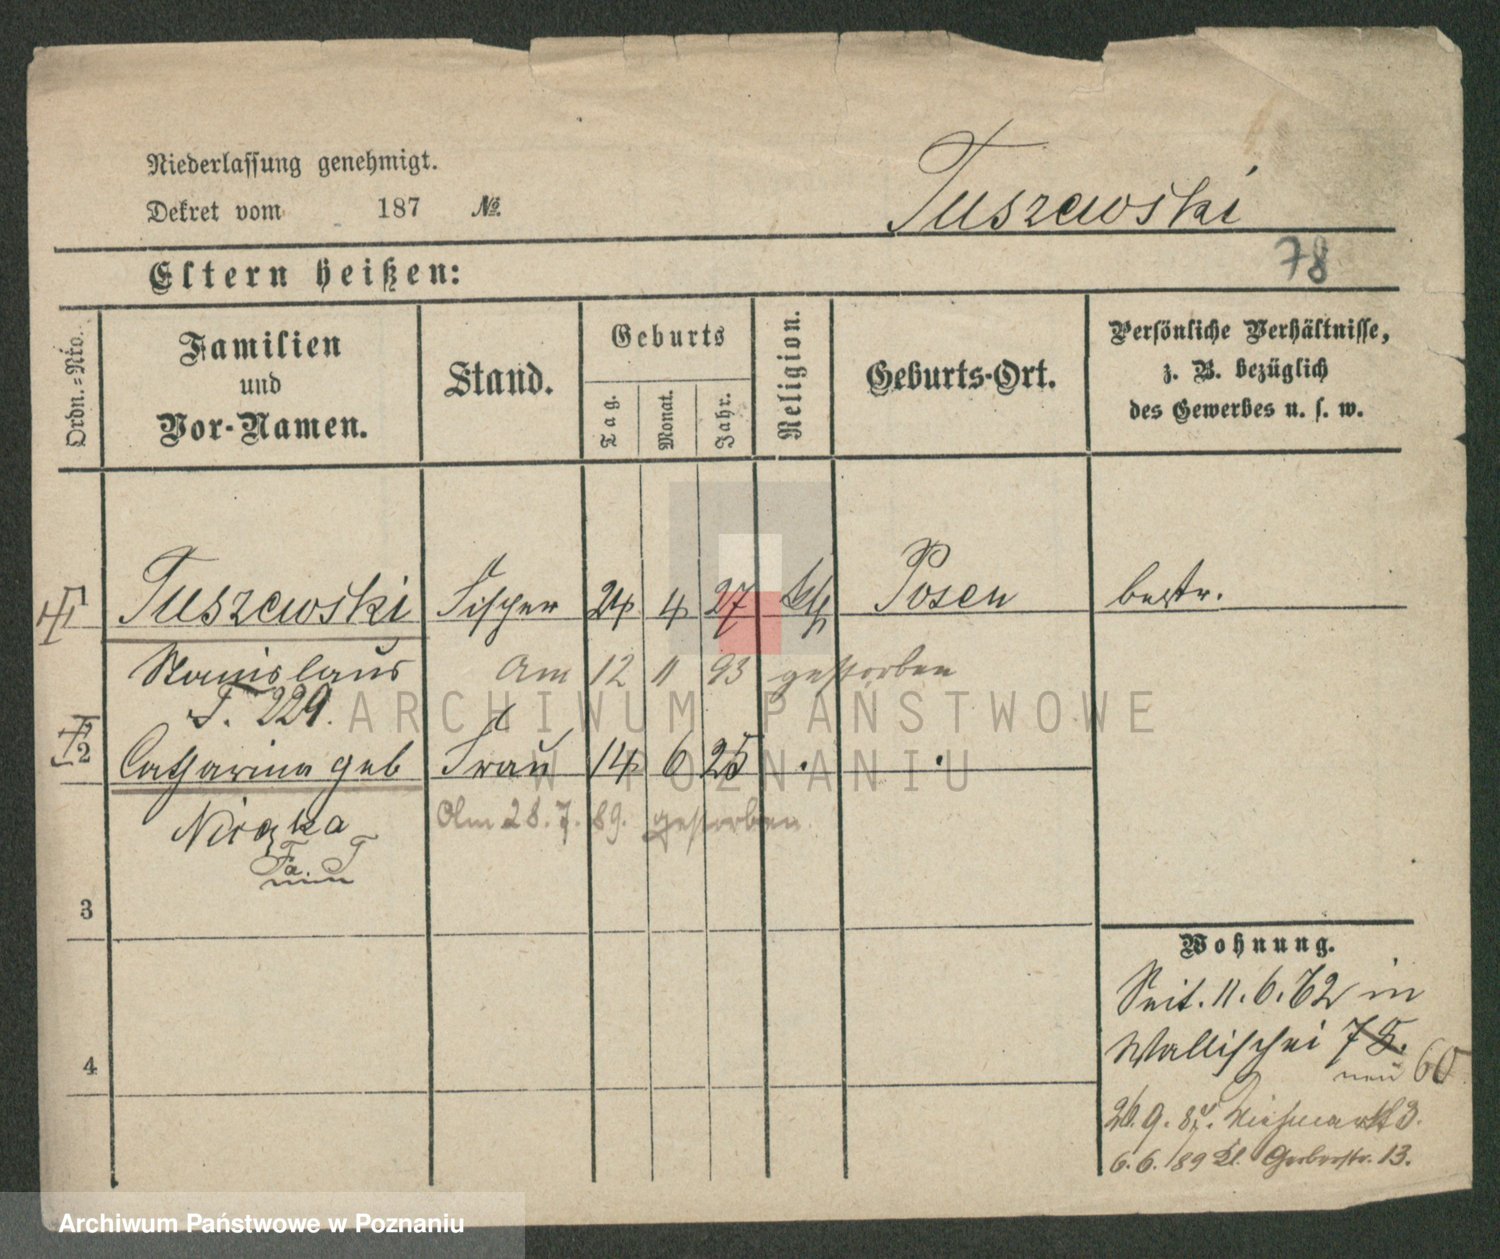 Niederlassung genehmigt.
Dekret vom 187 №
Tuszewski
78
Eltern heißen:
Ordn.=Nro.
Familien
und
Vor-Namen.
Stand.
Geburts
Tag.
Monat.
Jahr.
Religion.
Geburts-Ort.
Persönliche Verhältnisse,
z. B. bezüglich
des Gewerbes u. s. w.
1 Tuszewski Fischer 24 4 27 kth Posen bestr.
Stanislaus Am 12 11 93 gestorben
F. 229.
2 Catharina geb Frau 14 6 25 . .
Niczka Am 28. 7. 89. gestorben
3
4
Wohnung.
Seit. 11. 6. 62 in
Wallischei 78.
neu 60
26. 9. 87. Viehmarkt 3.
6. 6. 89 Kl. Gerberstr. 13.
ARCHIWUM PAŃSTWOWE
W POZNANIU
Archiwum Państwowe w Poznaniu